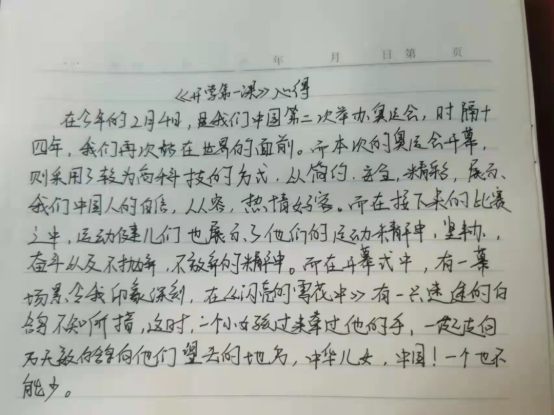 年 月 日 第 页
《开学第一课》心得
在今年的2月4日,是我们中国第二次举办奥运会,时隔十
四年,我们再次站在世界的面前。而本次的奥运会开幕,
则采用了较为高科技的方式,从简约,安全,精彩,展示
我们中国人的自信,从容,热情好客。而在接下来的比赛
之中,运动健儿们也展示了他们的运动精神,坚韧,
奋斗以及不抛弃,不放弃的精神。而在开幕式中,有一幕
场景令我印象深刻,在《闪亮的雪花中》有一只迷途的白
鸽不知所措,这时,一个小女孩过来牵过他的手,一起走向
万天数白鸽向他们望去的地方,中华儿女,中国!一个也不
能少。